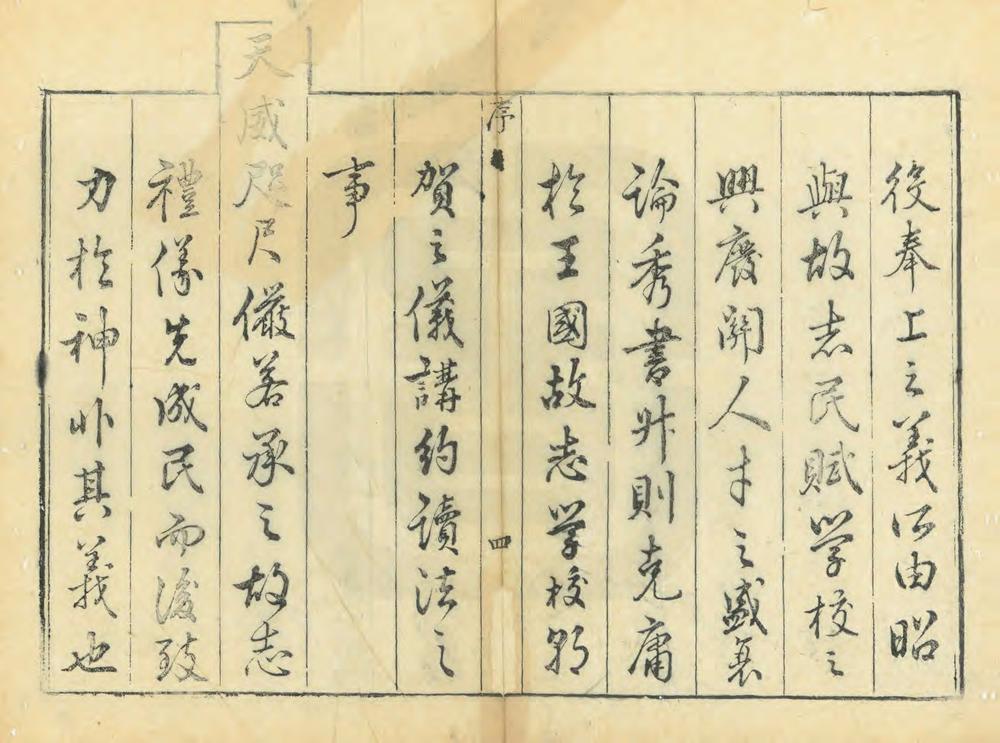 役奉上之義所由昭
與故志民賦学校之
興廢關人才之盛衰
論秀書升則克庸
於王國故志学校朝
序
四
賀之儀講約讀法之
事
天威咫尺儼若承之故志
禮儀先成民而後致
力於神此其義也